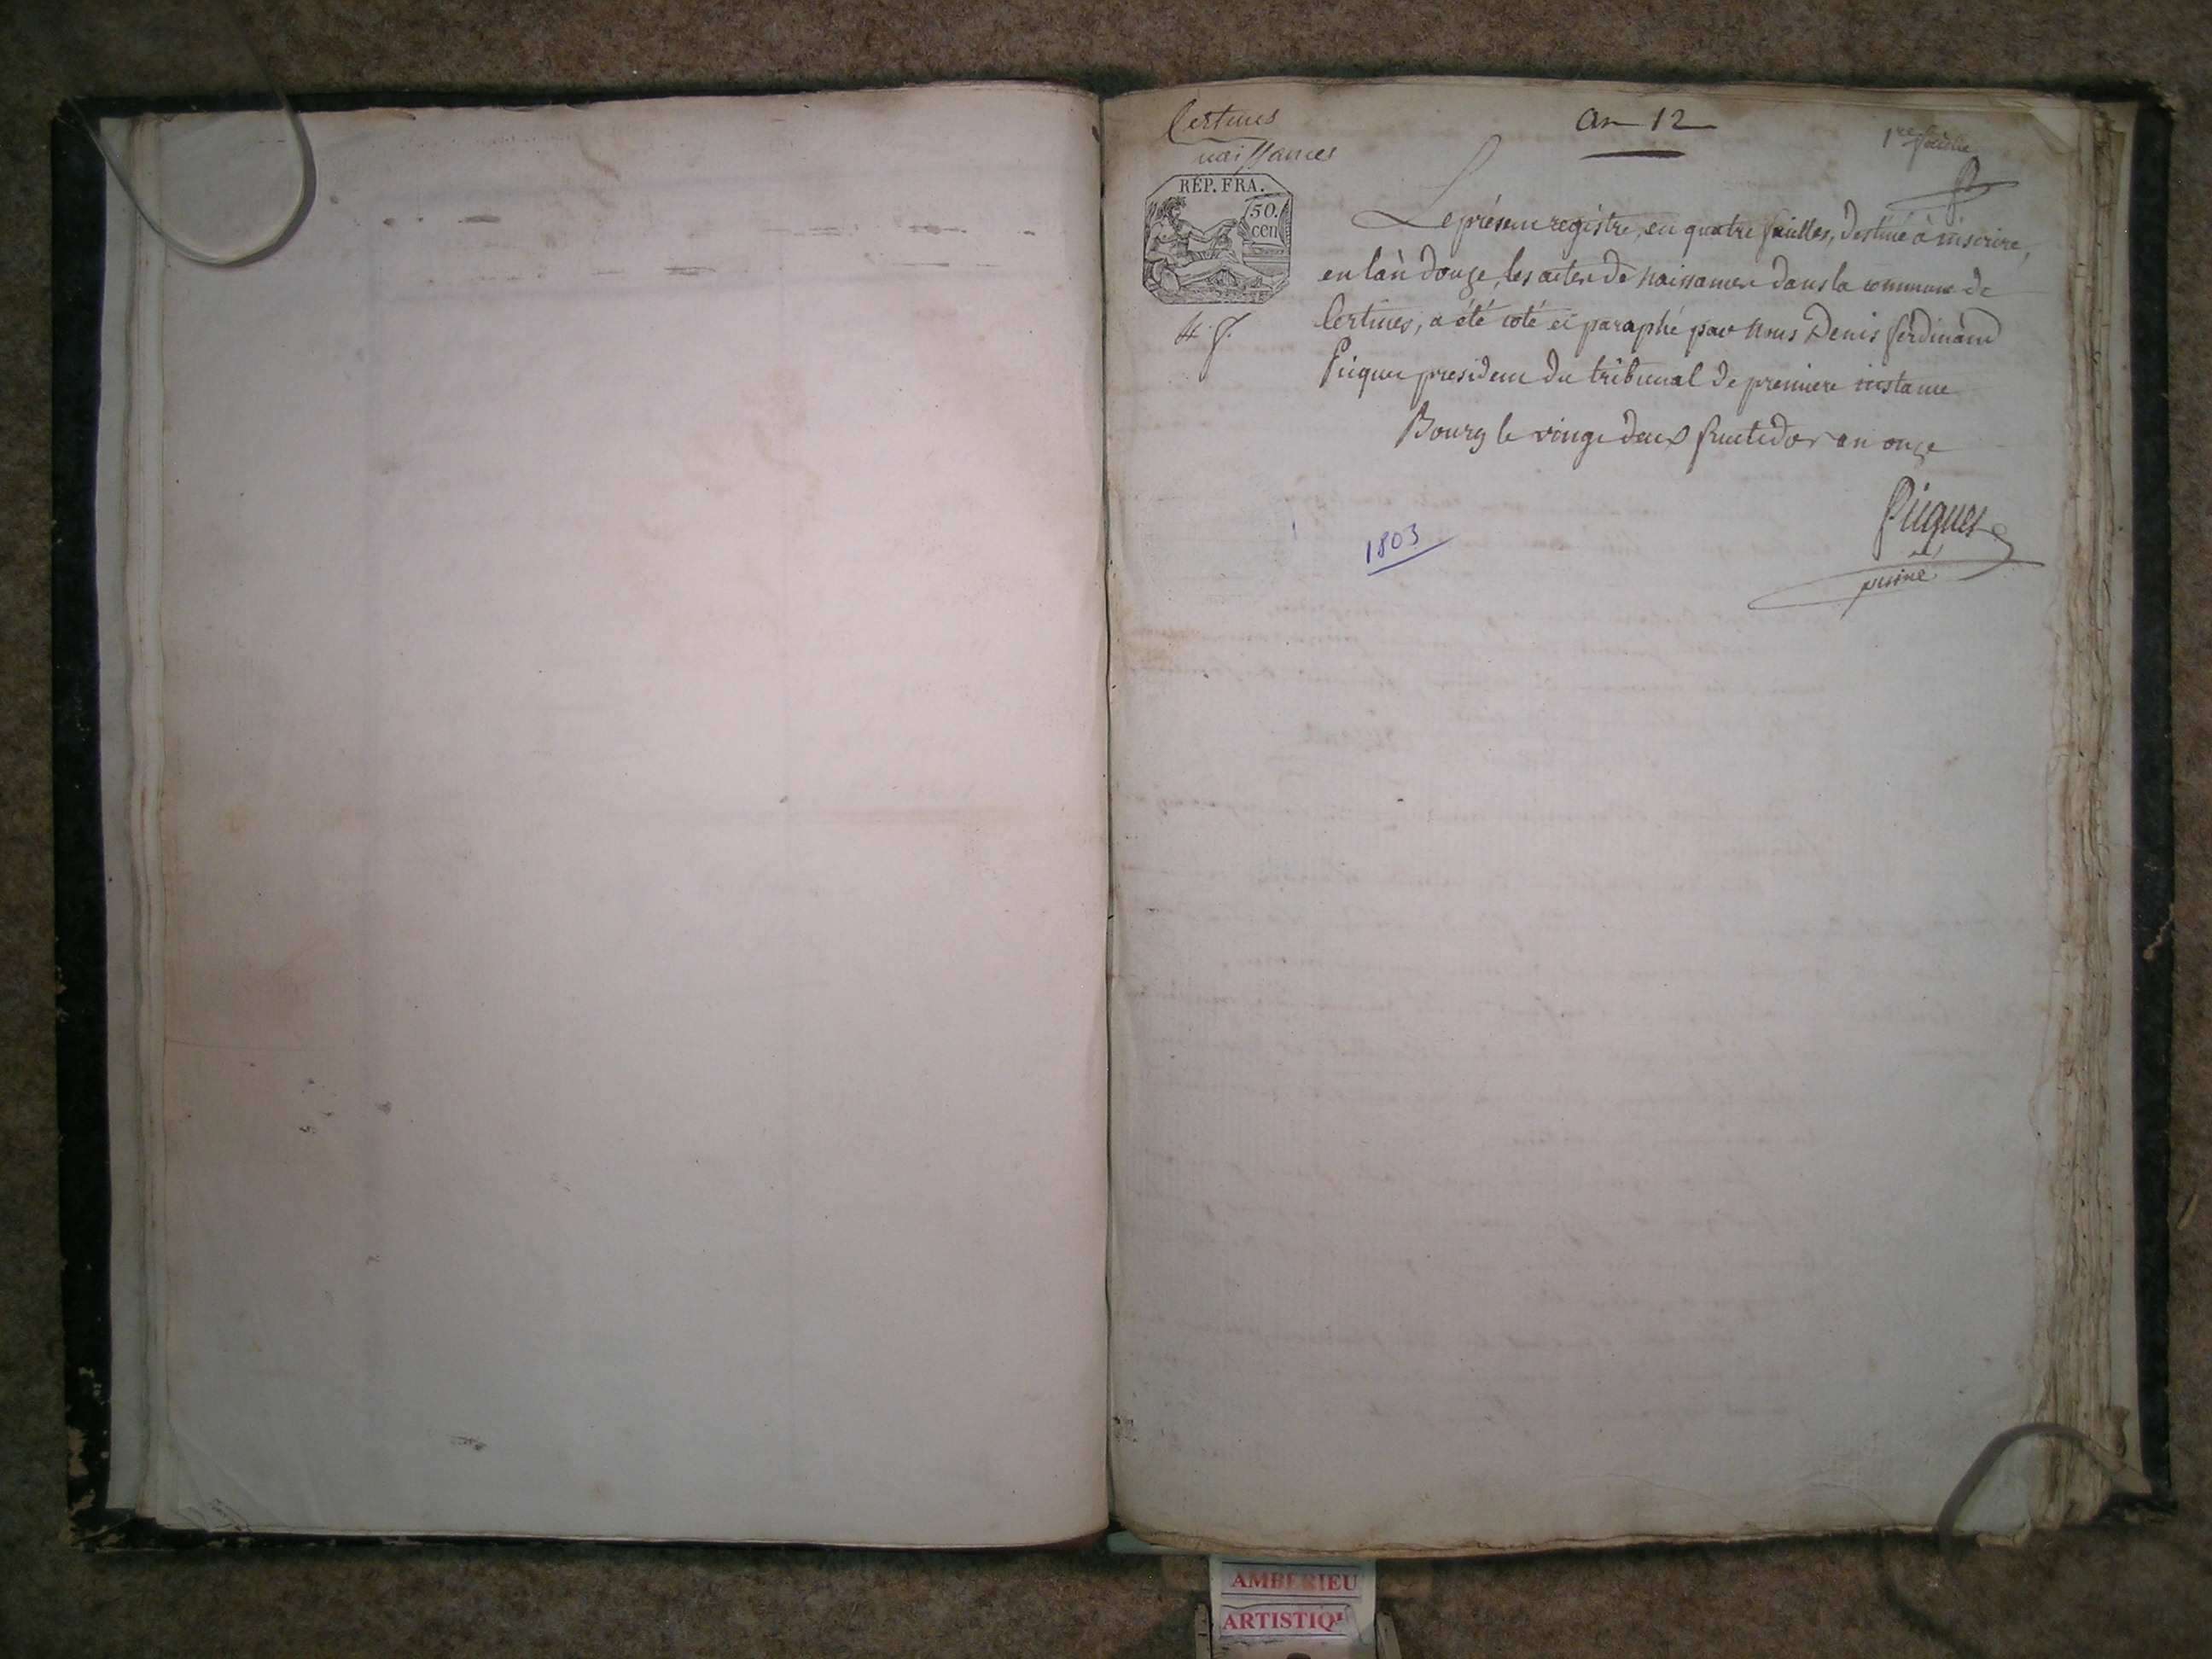 Certines
an 12
1re feuille
naissances
RÉP. FRA.
50.
cen
Le présent registre, en quatre feuilles, destiné à inscrire,
en l'an douze, les actes de naissances dans la commune de
Certines, a été coté et paraphé par nous Denis ferdinand
4. f.
Picquet president du tribunal de premiere instance
Bourg le vingt deux fructidor an onze
Picquet
1803
puiné
AMBERIEU
ARTISTIQ